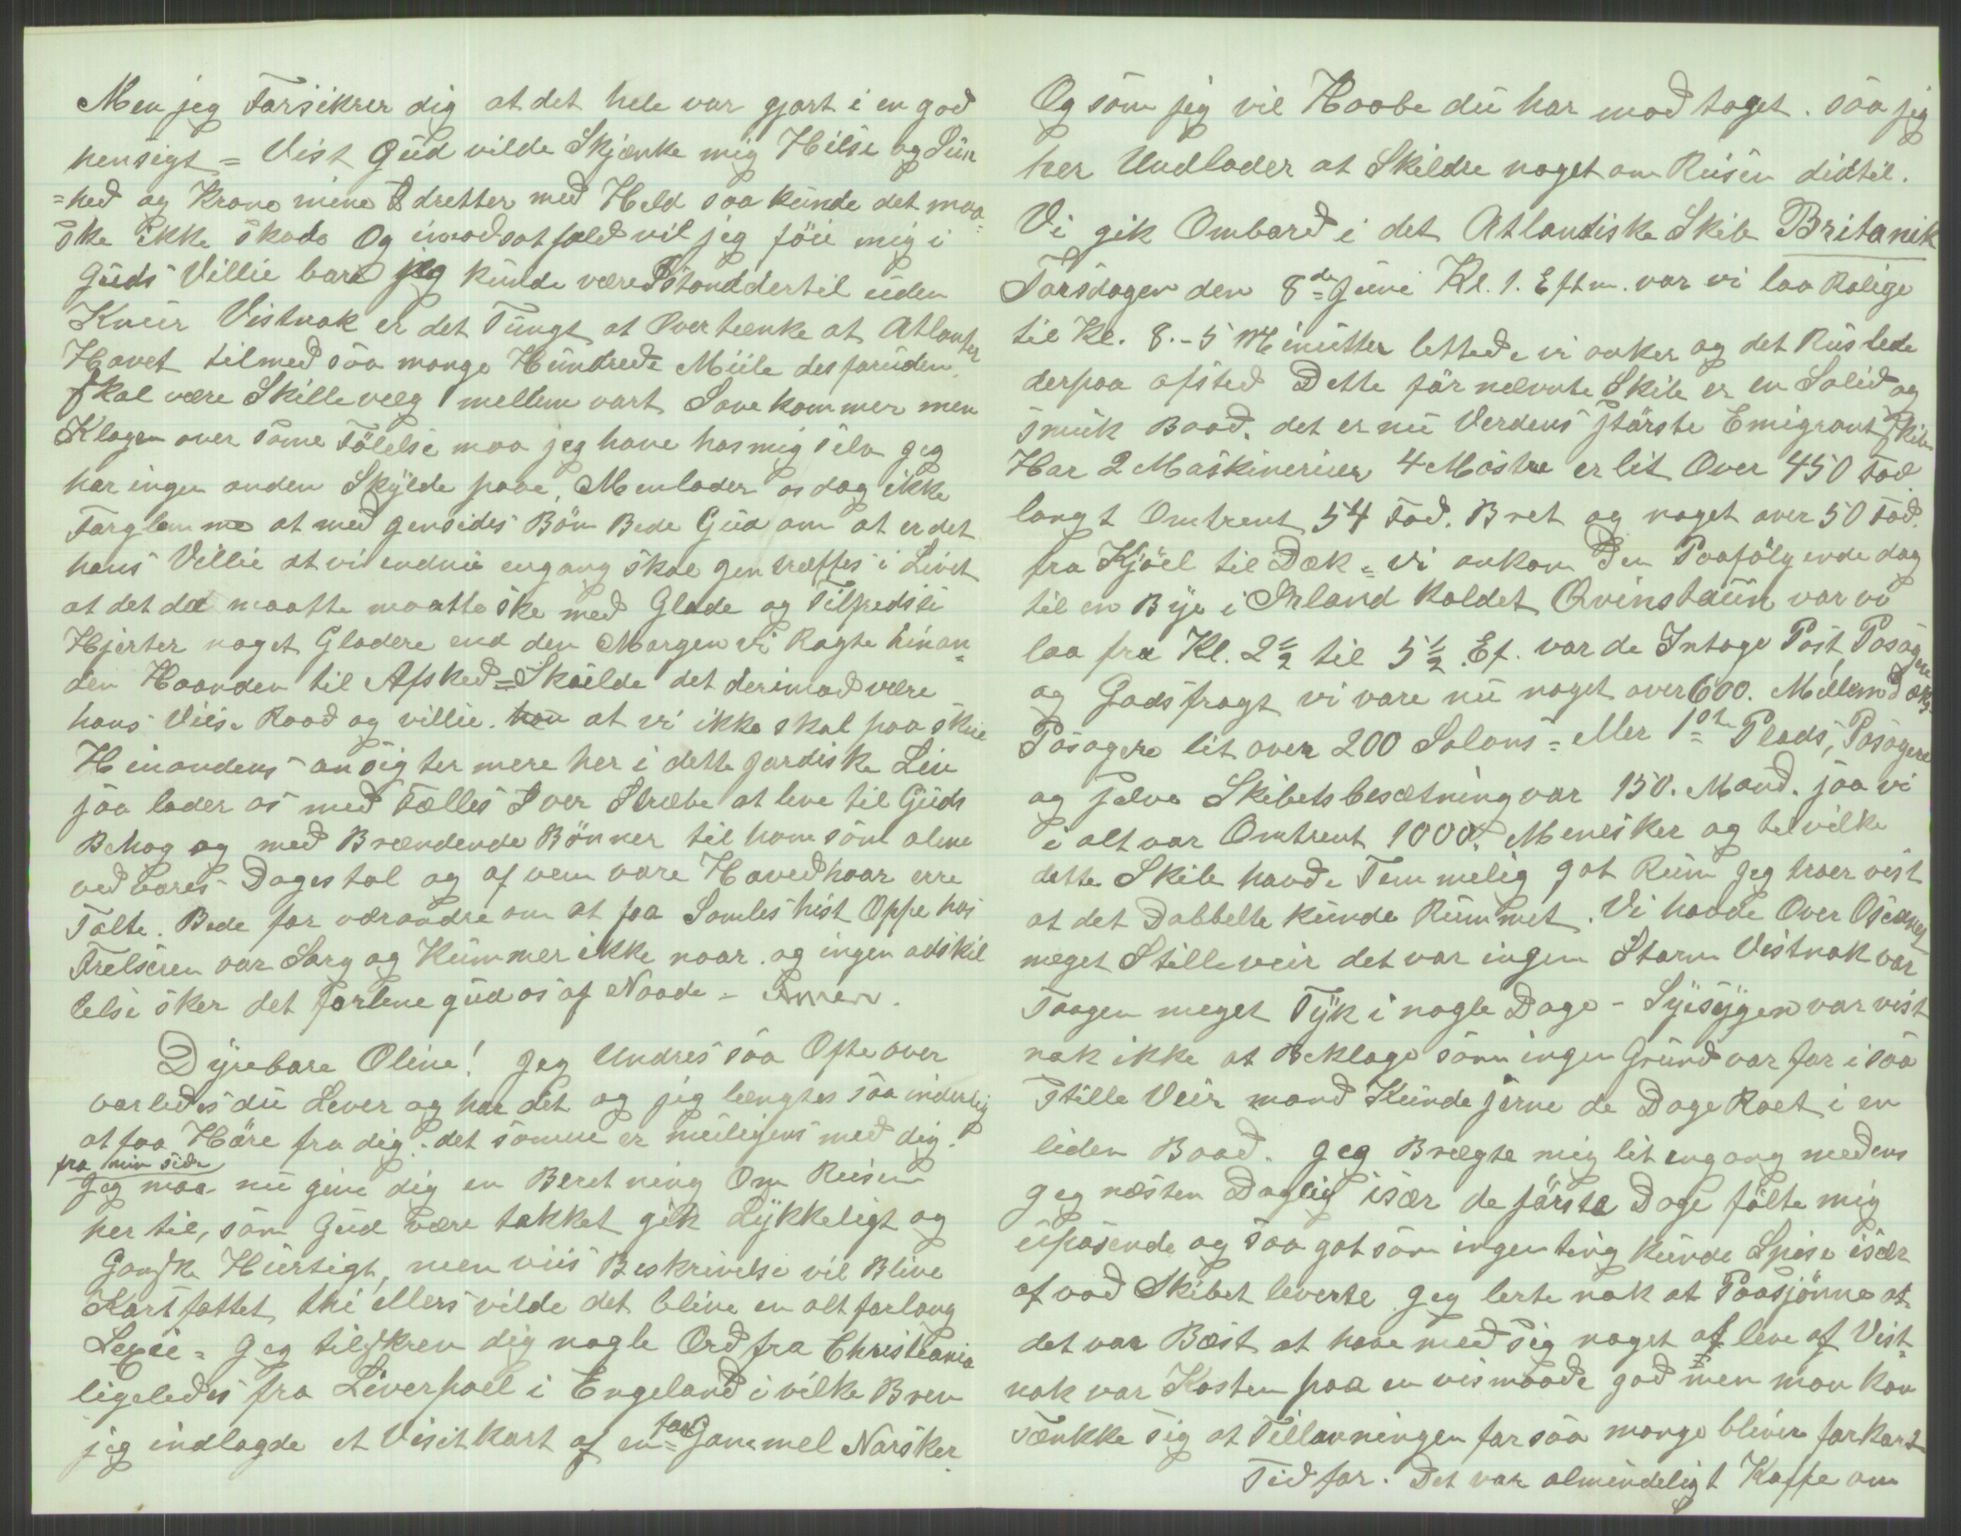 Men jeg Forsikrer dig at det hele var gjort i en god
hensigt = Vist Gud vilde Skjænke mig Hilse og Sün
=hed og Krone mine Idretter med Held saa kunde det maa=
ske ikke skade Og imodsatfald vil jeg föie mig i
Guds Villie bare jeg kunde være Istand dertil uden
Knur Vistnok er det Tungt at Overtænke at Atlanter
Havet tilmed saa mange Hundrede Miile desforuden
skal være Skillevæg mellem vort Sovekammer men
Klagen over somme Fölelse maa jeg have hos mig selv jeg
har ingen anden Skylde paae, Men lader os dog ikke
Forglemme at med gensides Bön Bede Gud om at er det
hans Villie at vi endnu engang skal gentræffes i Livet
at det da maatte maatte ske med Glade og Tilfredse
Hjerter noget Gladere end den Morgen vi Ragte hinan=
den Haanden til Afsked = Skulde det derimod være
hans Viise Raad og villie. at vi ikke skal paaskue
Hinandens ansigter mere her i dette jordiske Liv
saa lader os med Fælles Iver Stræbe at leve til Guds
Behag og med Brændende Bönner til ham som alene
ved vores Dages tal og af vem vore Hovedhaar erre
Talte. Bede for værandre om at faa Samles hist Oppe hos
Frelseren vor Sorg og Kummer ikke naar. og ingen adskil
lelse sker det forlene gud os af Naade - Amen.
Dyrebare Oline! Jeg Undres saa Ofte over
vorledes du Lever og har det og jeg længtes saa inderlig
at faa Höre fra dig. det somme er muligens med dig.
fra min side
Jeg maa nu give dig en Beretning Om Reisen
her til, som Gud være takket gik Lykkeligt og
Ganske Hurtigt, men viis Beskrivelse vil Blive
Kortfattet thi ellers vilde det blive en alt forlang
Lexie = Jeg tilskrev dig nogle Ord fra Christiania
ligeledes fra Liverpoel i Engeland i vilke Brev
jeg indlagde et Visitkart af en Gammel Norsker
Og som jeg vil Haabe du har modtaget. saa jeg
her Undlader at Skildre noget om Reisen didtil.
Vi gik Ombord i det Atlantiske Skib Britanik
Torsdagen den 8de Juni Kl. 1. Eftm. vor vi laa Rolige
til Kl. 8.-5 Minutter lettede vi anker og det Ruslede
derpaa afsted Detteför nævnte Skib er en Solid og
smuk Baad. det er nu Verdens störste Emigrant Skib
Har 2 Maskinerier 4 Mastre er lit Over 450 Fod
langt Omtrent 54 Fod. Bret og noget over 50 Fod.
fra Kjöel til Dæk = Vi ankom Den Paafölgende dag
til en Bye i Irland kaldet Qvinstaun vor vi
laa fra Kl. 2 1/2 til 5 1/2. Ef. vor de Intoge Post, Pasagere
og Godsfragt vi vare nu noget over 600. Millemdæks=
Pasagere lit over 200 Salons= eller 1ste Plads, Pasagere
og selve Skibetsbesætning var 150. Mand. saa vi
i alt var Omtrent 1000. Menesker og tilvilke
dette Skib havde Temmelig got Rum jeg troer vist
at det Dobbelte kunde Rummet. Vi havde Over Oseanet
meget Stilleveir det var ingen Storm Vistnok var
Taagen meget Tyk i nogle Dage - Syesygen var vist
nok ikke at Beklage som ingen Grund var for i saa
Stille Veir mand Kunde gerne de Dage Roet i en
liden Baad. Jeg Brægte mig lit engang medens
Jeg næsten Daglig især de förste Dage fölte mig
upasende og saa got som ingenting kunde Spise især
af vad Skibet leverte Jeg lerte nok at Paasjönne at
det var Bæst at have med sig noget af leve af Vist=
nok var Kosten paa en vismaade god men man kan
Tænkke sig at Tillavningen for saa mange bliver forkort
Tid for. Det var almindeligt Kaffe om